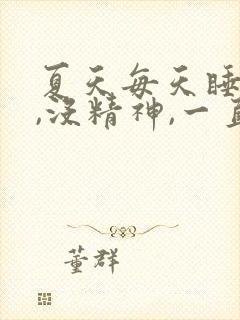 夏天每天睡
,没精神,一直
董群